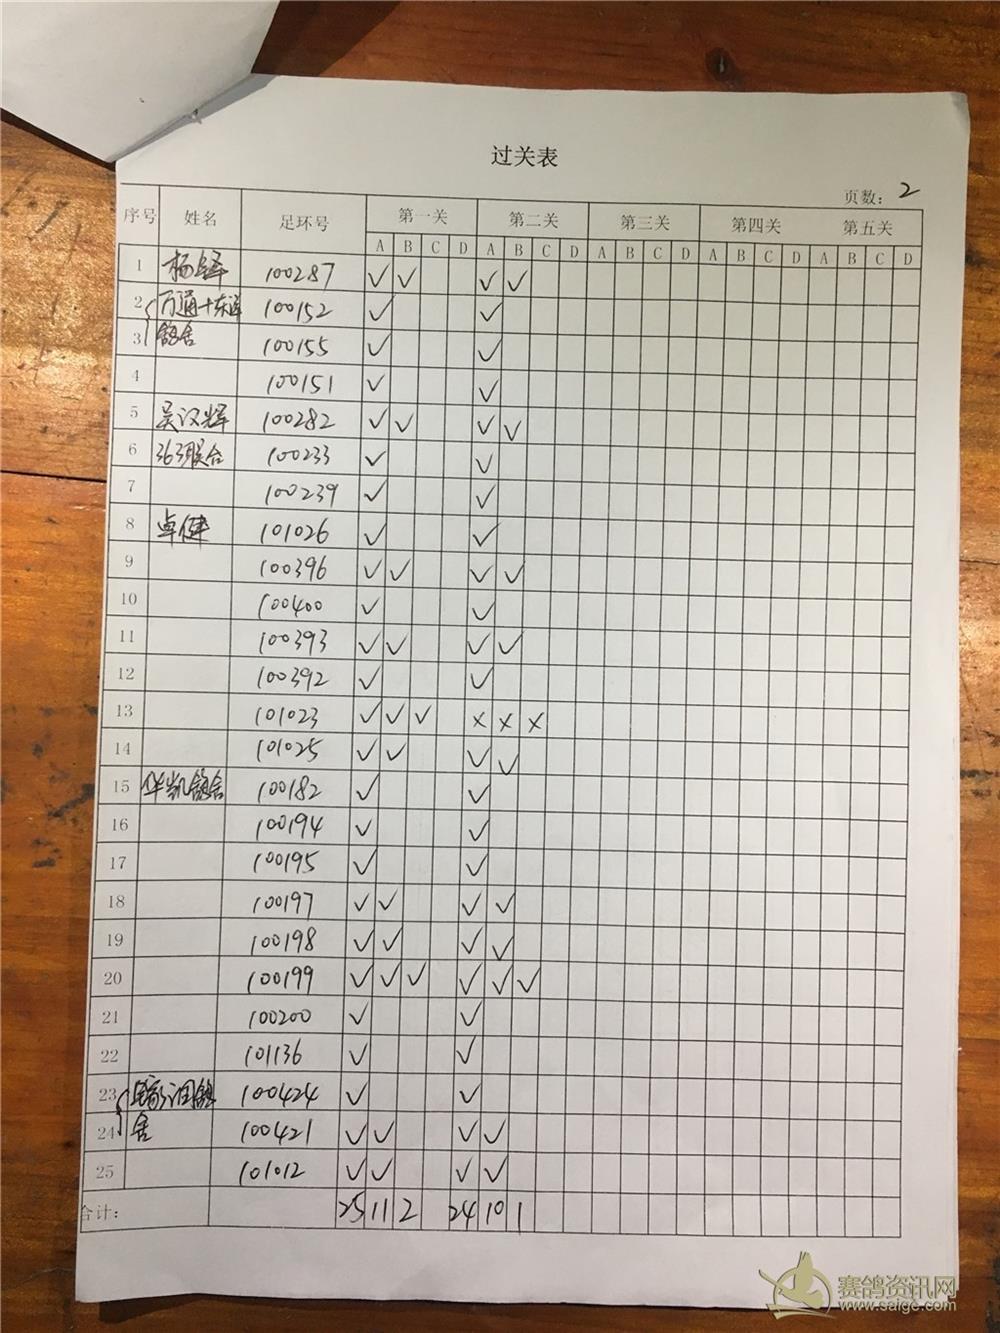 过关表
页数: 2
序号 姓名 足环号 第一关 第二关 第三关 第四关 第五关
A B C D A B C D A B C D A B C D A B C D
1 杨锋 100287 ✓ ✓ ✓ ✓
2 万通十东 100152 ✓ ✓
3 鸽舍 100155 ✓ ✓
4 100151 ✓ ✓
5 吴汉辉 100282 ✓ ✓ ✓ ✓
6 363联合 100233 ✓ ✓
7 100239 ✓ ✓
8 卓健 101026 ✓ ✓
9 100396 ✓ ✓ ✓ ✓
10 100400 ✓ ✓
11 100393 ✓ ✓ ✓ ✓
12 100392 ✓ ✓
13 101023 ✓ ✓ ✓ × × ×
14 101025 ✓ ✓ ✓ ✓
15 华凯鸽舍 100182 ✓ ✓
16 100194 ✓ ✓
17 100195 ✓ ✓
18 100197 ✓ ✓ ✓ ✓
19 100198 ✓ ✓ ✓ ✓
20 100199 ✓ ✓ ✓ ✓ ✓ ✓
21 100200 ✓ ✓
22 101136 ✓ ✓
23 鸽 100424 ✓ ✓
24 舍 100421 ✓ ✓ ✓ ✓
25 101012 ✓ ✓ ✓ ✓
合计: 25 11 2 24 10 1
赛鸽资讯网
www.saige.com